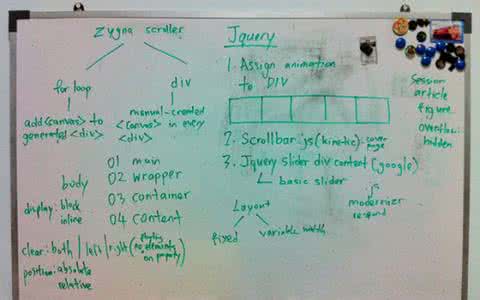 Zygna scroller
for loop
add <canvas> to
generated <div>
div
manual-created
<canvas> in every
<div>
body
01 main
02 wrapper
03 container
04 content
display: block
inline
clear: both / left / right (floating
no elements
on property)
position: absolute
relative
Jquery
1. Assign animation
to DIV
2. Scrollbar.js (kinetic): cover
page
3. Jquery slider div content (google)
basic slider
Layout
fixed
variable width
js
modernizer
respond
Session
article
figure
overflow:
hidden